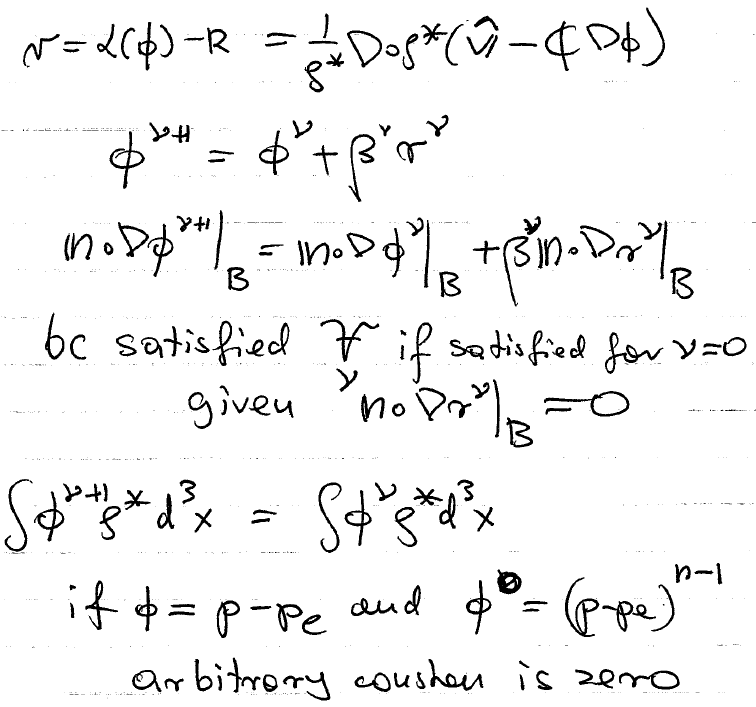 r = L(ϕ) - R = 1/ρ* ∇∘ρ*(v̂ - ₵∇ϕ)
ϕ^ν+1 = ϕ^ν + β^ν r^ν
n∘∇ϕ^ν+1|_B = n∘∇ϕ^ν|_B + β^ν n∘∇r^ν|_B
bc satisfied ∀ν if satisfied for ν=0
given n∘∇r^ν|_B = 0
∫ϕ^ν+1 ρ* d³x = ∫ϕ^ν ρ* d³x
if ϕ = p-pe and ϕ⁰ = (p-pe)^n-1
arbitrary is zero